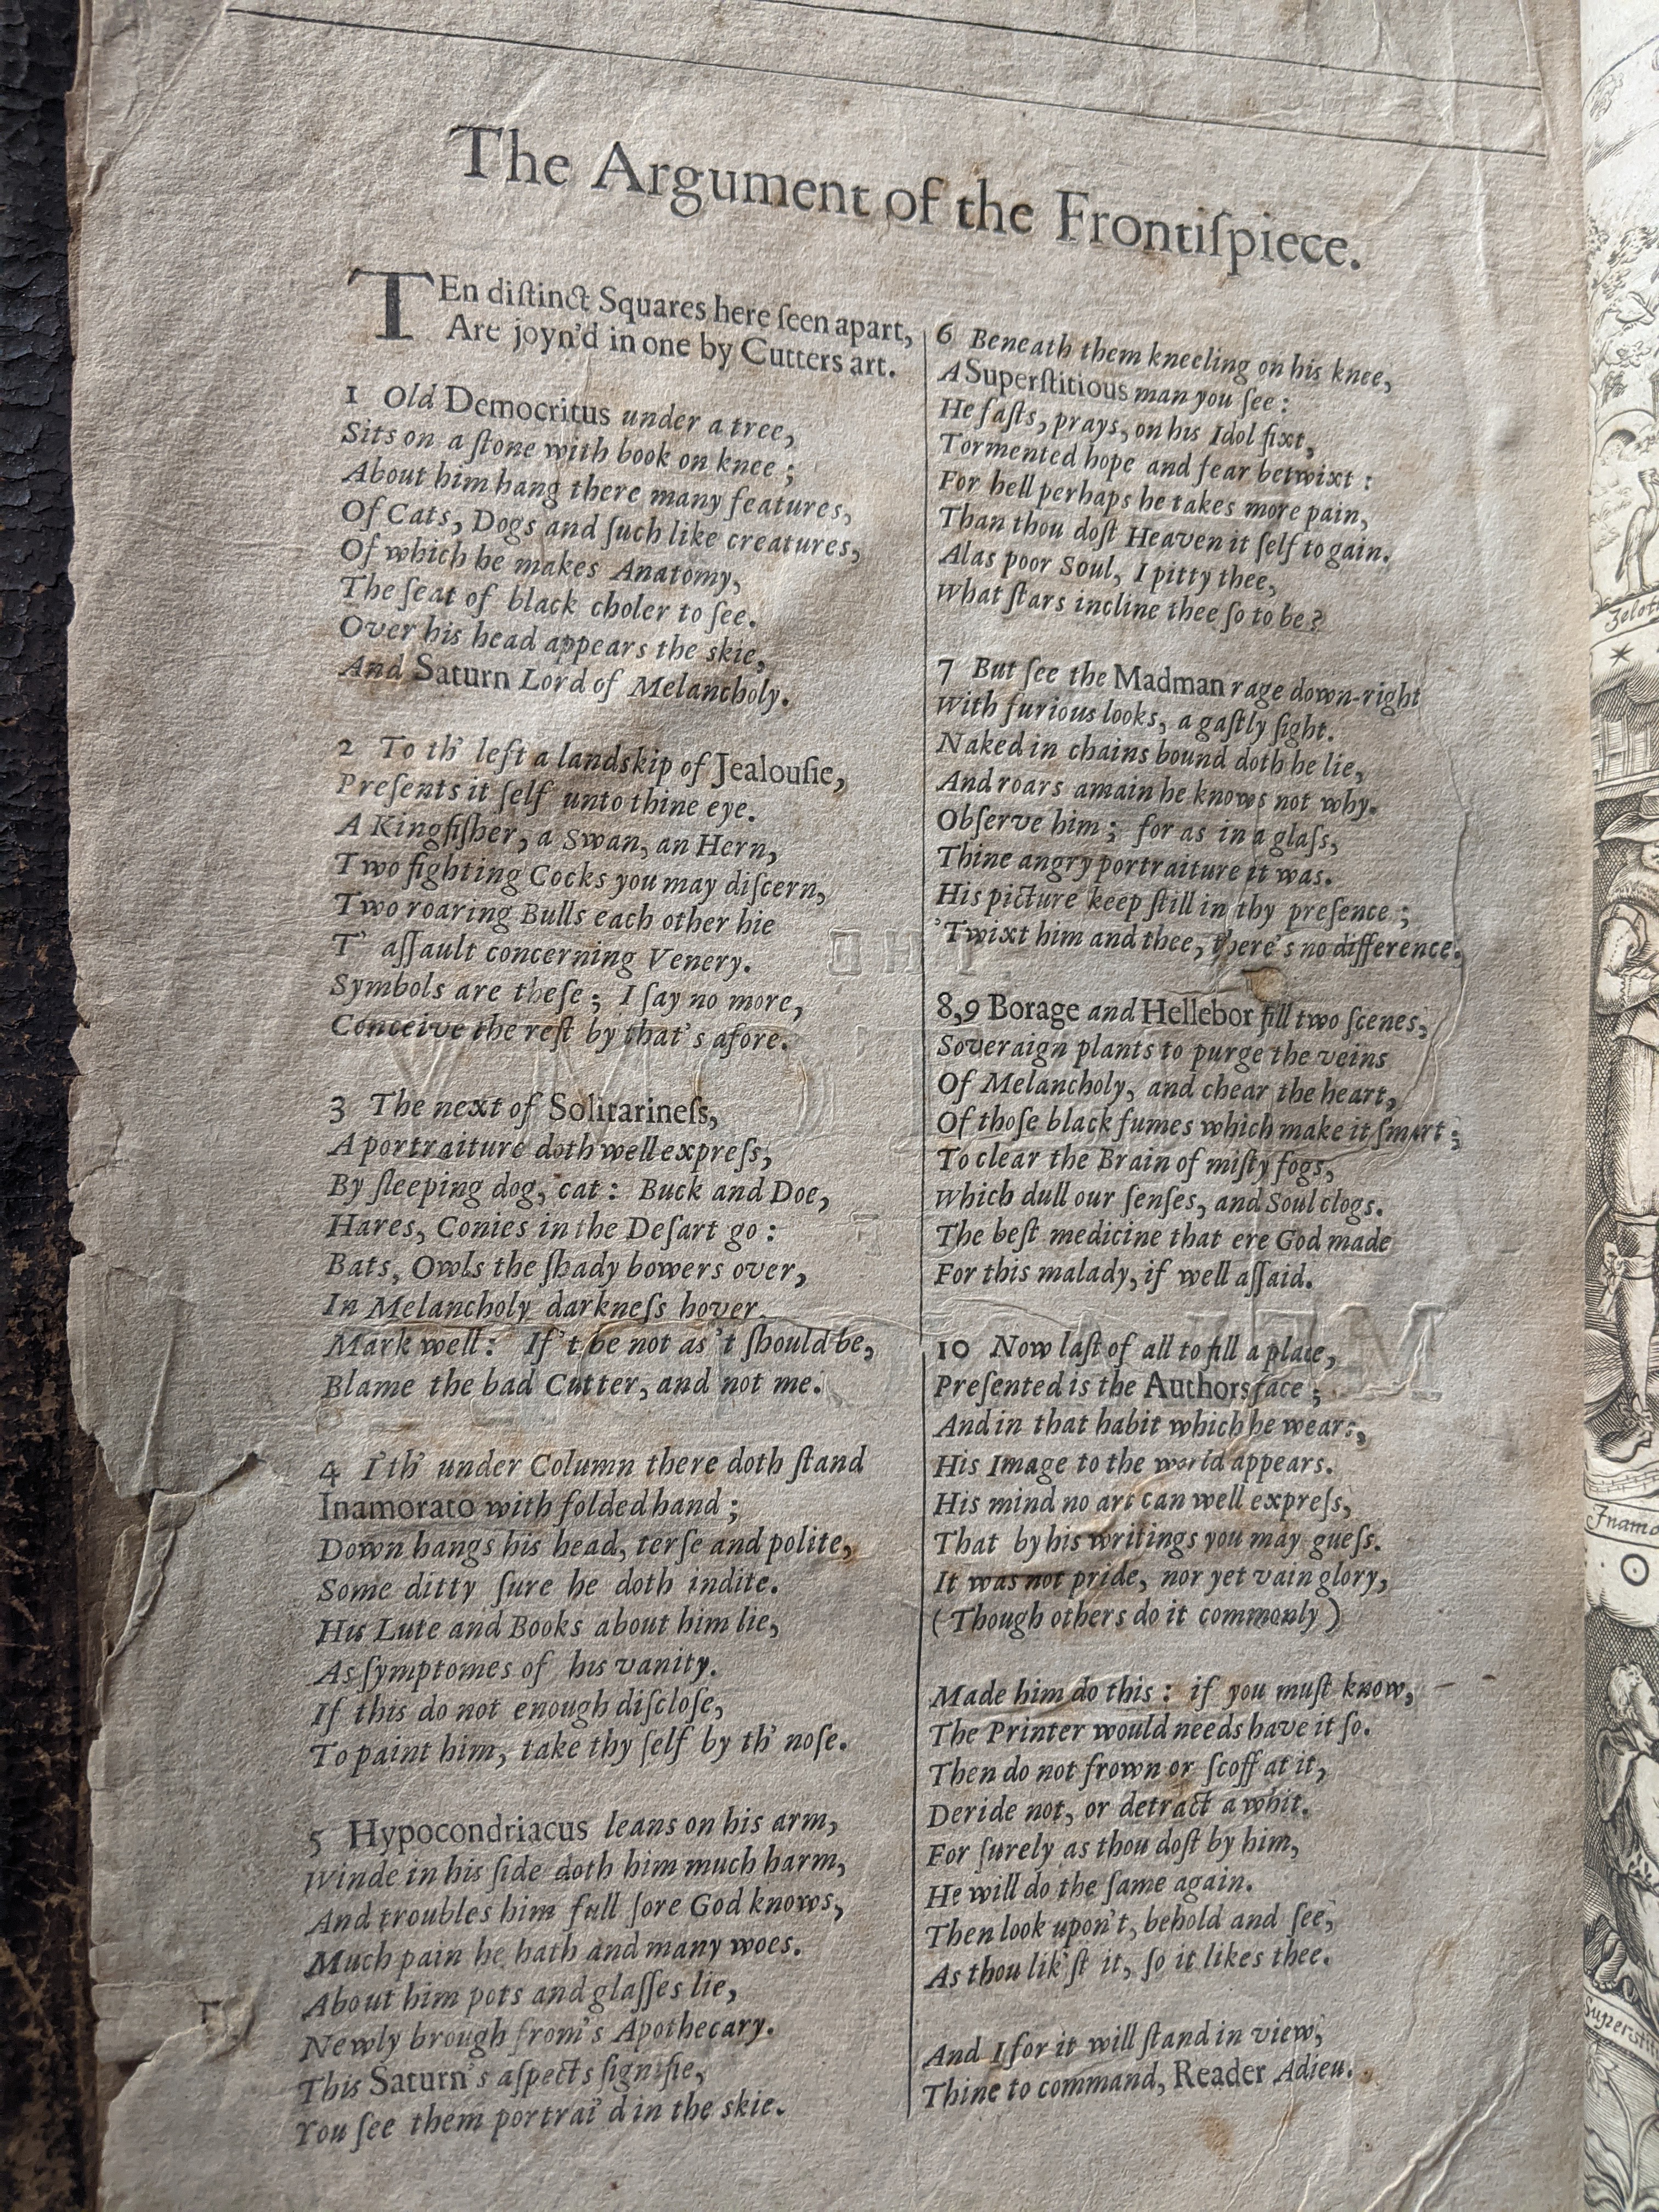 The Argument of the Frontiſpiece.
TEn diſtinct Squares here ſeen apart,
Are joyn'd in one by Cutters art.
1 Old Democritus under a tree,
Sits on a ſtone with book on knee;
About him hang there many features,
Of Cats, Dogs and ſuch like creatures,
Of which he makes Anatomy,
The ſeat of black choler to ſee.
Over his head appears the skie,
And Saturn Lord of Melancholy.
2 To th' left a landskip of Jealouſie,
Preſents it ſelf unto thine eye.
A Kingfiſher, a Swan, an Hern,
Two fighting Cocks you may diſcern,
Two roaring Bulls each other hie
T' aſſault concerning Venery.
Symbols are theſe; I ſay no more,
Conceive the reſt by that's afore.
3 The next of Solitarineſs,
A portraiture doth well expreſs,
By ſleeping dog, cat: Buck and Doe,
Hares, Conies in the Deſart go:
Bats, Owls the ſhady bowers over,
In Melancholy darkneſs hover.
Mark well: If't be not as't ſhould be,
Blame the bad Cutter, and not me.
4 I'th' under Column there doth ſtand
Inamorato with folded hand;
Down hangs his head, terſe and polite,
Some ditty ſure he doth indite.
His Lute and Books about him lie,
As ſymptomes of his vanity.
If this do not enough diſcloſe,
To paint him, take thy ſelf by th' noſe.
5 Hypocondriacus leans on his arm,
Winde in his ſide doth him much harm,
And troubles him full ſore God knows,
Much pain he hath and many woes.
About him pots and glaſſes lie,
Newly brough from's Apothecary.
This Saturn's aſpects ſignifie,
You ſee them portrai'd in the skie.
6 Beneath them kneeling on his knee,
A Superſtitious man you ſee:
He faſts, prays, on his Idol fixt,
Tormented hope and fear betwixt:
For hell perhaps he takes more pain,
Than thou doſt Heaven it ſelf to gain.
Alas poor Soul, I pitty thee,
What ſtars incline thee ſo to be?
7 But ſee the Madman rage down-right
With furious looks, a gaſtly ſight.
Naked in chains bound doth he lie,
And roars amain he knows not why.
Obſerve him; for as in a glaſs,
Thine angry portraiture it was.
His picture keep ſtill in thy preſence;
'Twixt him and thee, there's no difference.
8,9 Borage and Hellebor fill two ſcenes,
Soveraign plants to purge the veins
Of Melancholy, and chear the heart,
Of thoſe black fumes which make it ſmart;
To clear the Brain of miſty fogs,
Which dull our ſenſes, and Soul clogs.
The beſt medicine that ere God made
For this malady, if well aſſaid.
10 Now laſt of all to fill a place,
Preſented is the Authors face;
And in that habit which he wears,
His Image to the world appears.
His mind no art can well expreſs,
That by his writings you may gueſs.
It was not pride, nor yet vain glory,
(Though others do it commonly)
Made him do this: if you muſt know,
The Printer would needs have it ſo.
Then do not frown or ſcoff at it,
Deride not, or detract a whit.
For ſurely as thou doſt by him,
He will do the ſame again.
Then look upon't, behold and ſee,
As thou lik'ſt it, ſo it likes thee.
And I for it will ſtand in view,
Thine to command, Reader Adieu.